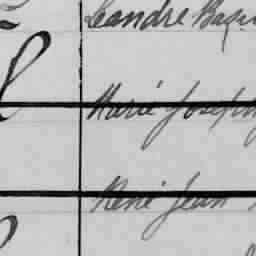 Leandre Bap
Marie Joseph
René Jean